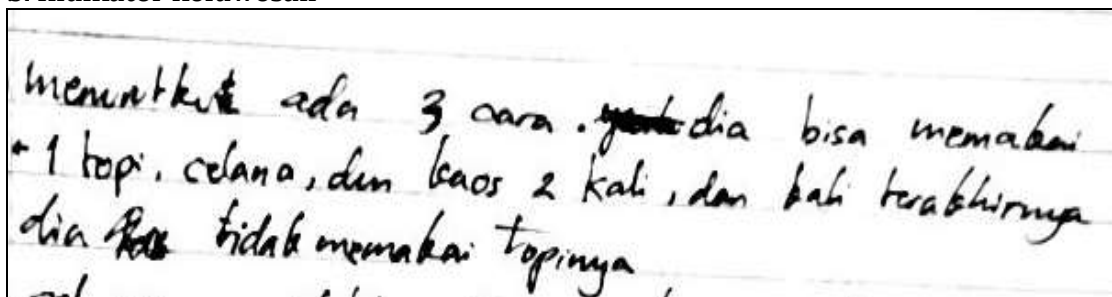 menurutku ada 3 cara. dia bisa memakai
- 1 topi, celana, dan kaos 2 kali, dan kali terakhirnya
dia tidak memakai topinya